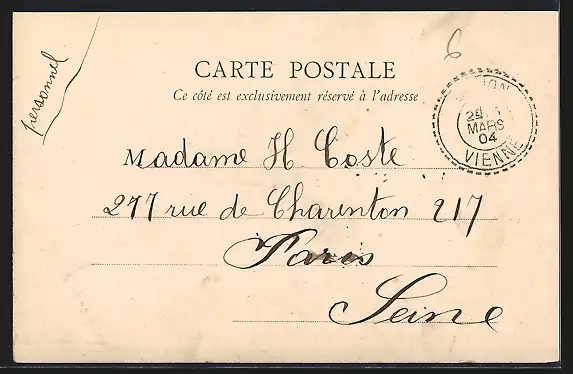 personnel
6
CARTE POSTALE
Ce côté est exclusivement réservé à l'adresse
MARS
04
VIENNE
Madame H Coste
217 rue de Charenton 217
Paris
Seine